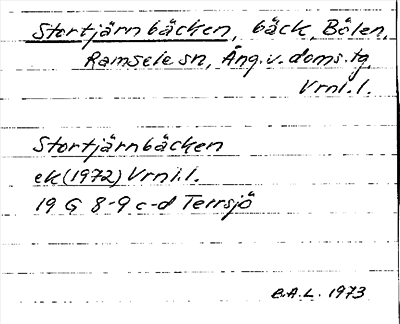 Stortjärnbäcken, bäck, Bölen,
Ramsele sn, Ång. v. doms. tg
Vrnl.l.
Stortjärnbäcken
ek (1972) Vrnl.l.
19 G 8-9 c-d Terrsjö
B.A.L. 1973